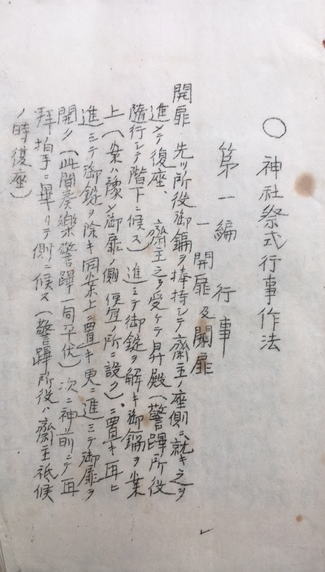 ○ 神社祭式行事作法
第一編 行事
一 開扉及閉扉
開扉 先ツ所役御鑰ヲ捧持シテ齋主ノ座側ニ就キ之ヲ
進メテ復座、齋主之ヲ受ケテ昇殿(警蹕所役
隨行シテ階下ニ候ス)進ミテ御錠ヲ解キ御鑰ヲ案
上(案ハ豫メ御扉ノ側便宜ノ所ニ設ク)ニ置キ再ヒ
進ミテ御錠ヲ除キ同案上ニ置キ更ニ進ミテ御扉ヲ
開ク(此間奏樂警蹕一同平伏)次ニ神前ニテ再
拜拍手ニ畢リテ側ニ候ス(警蹕所役ハ齋主祗候
ノ時復座)